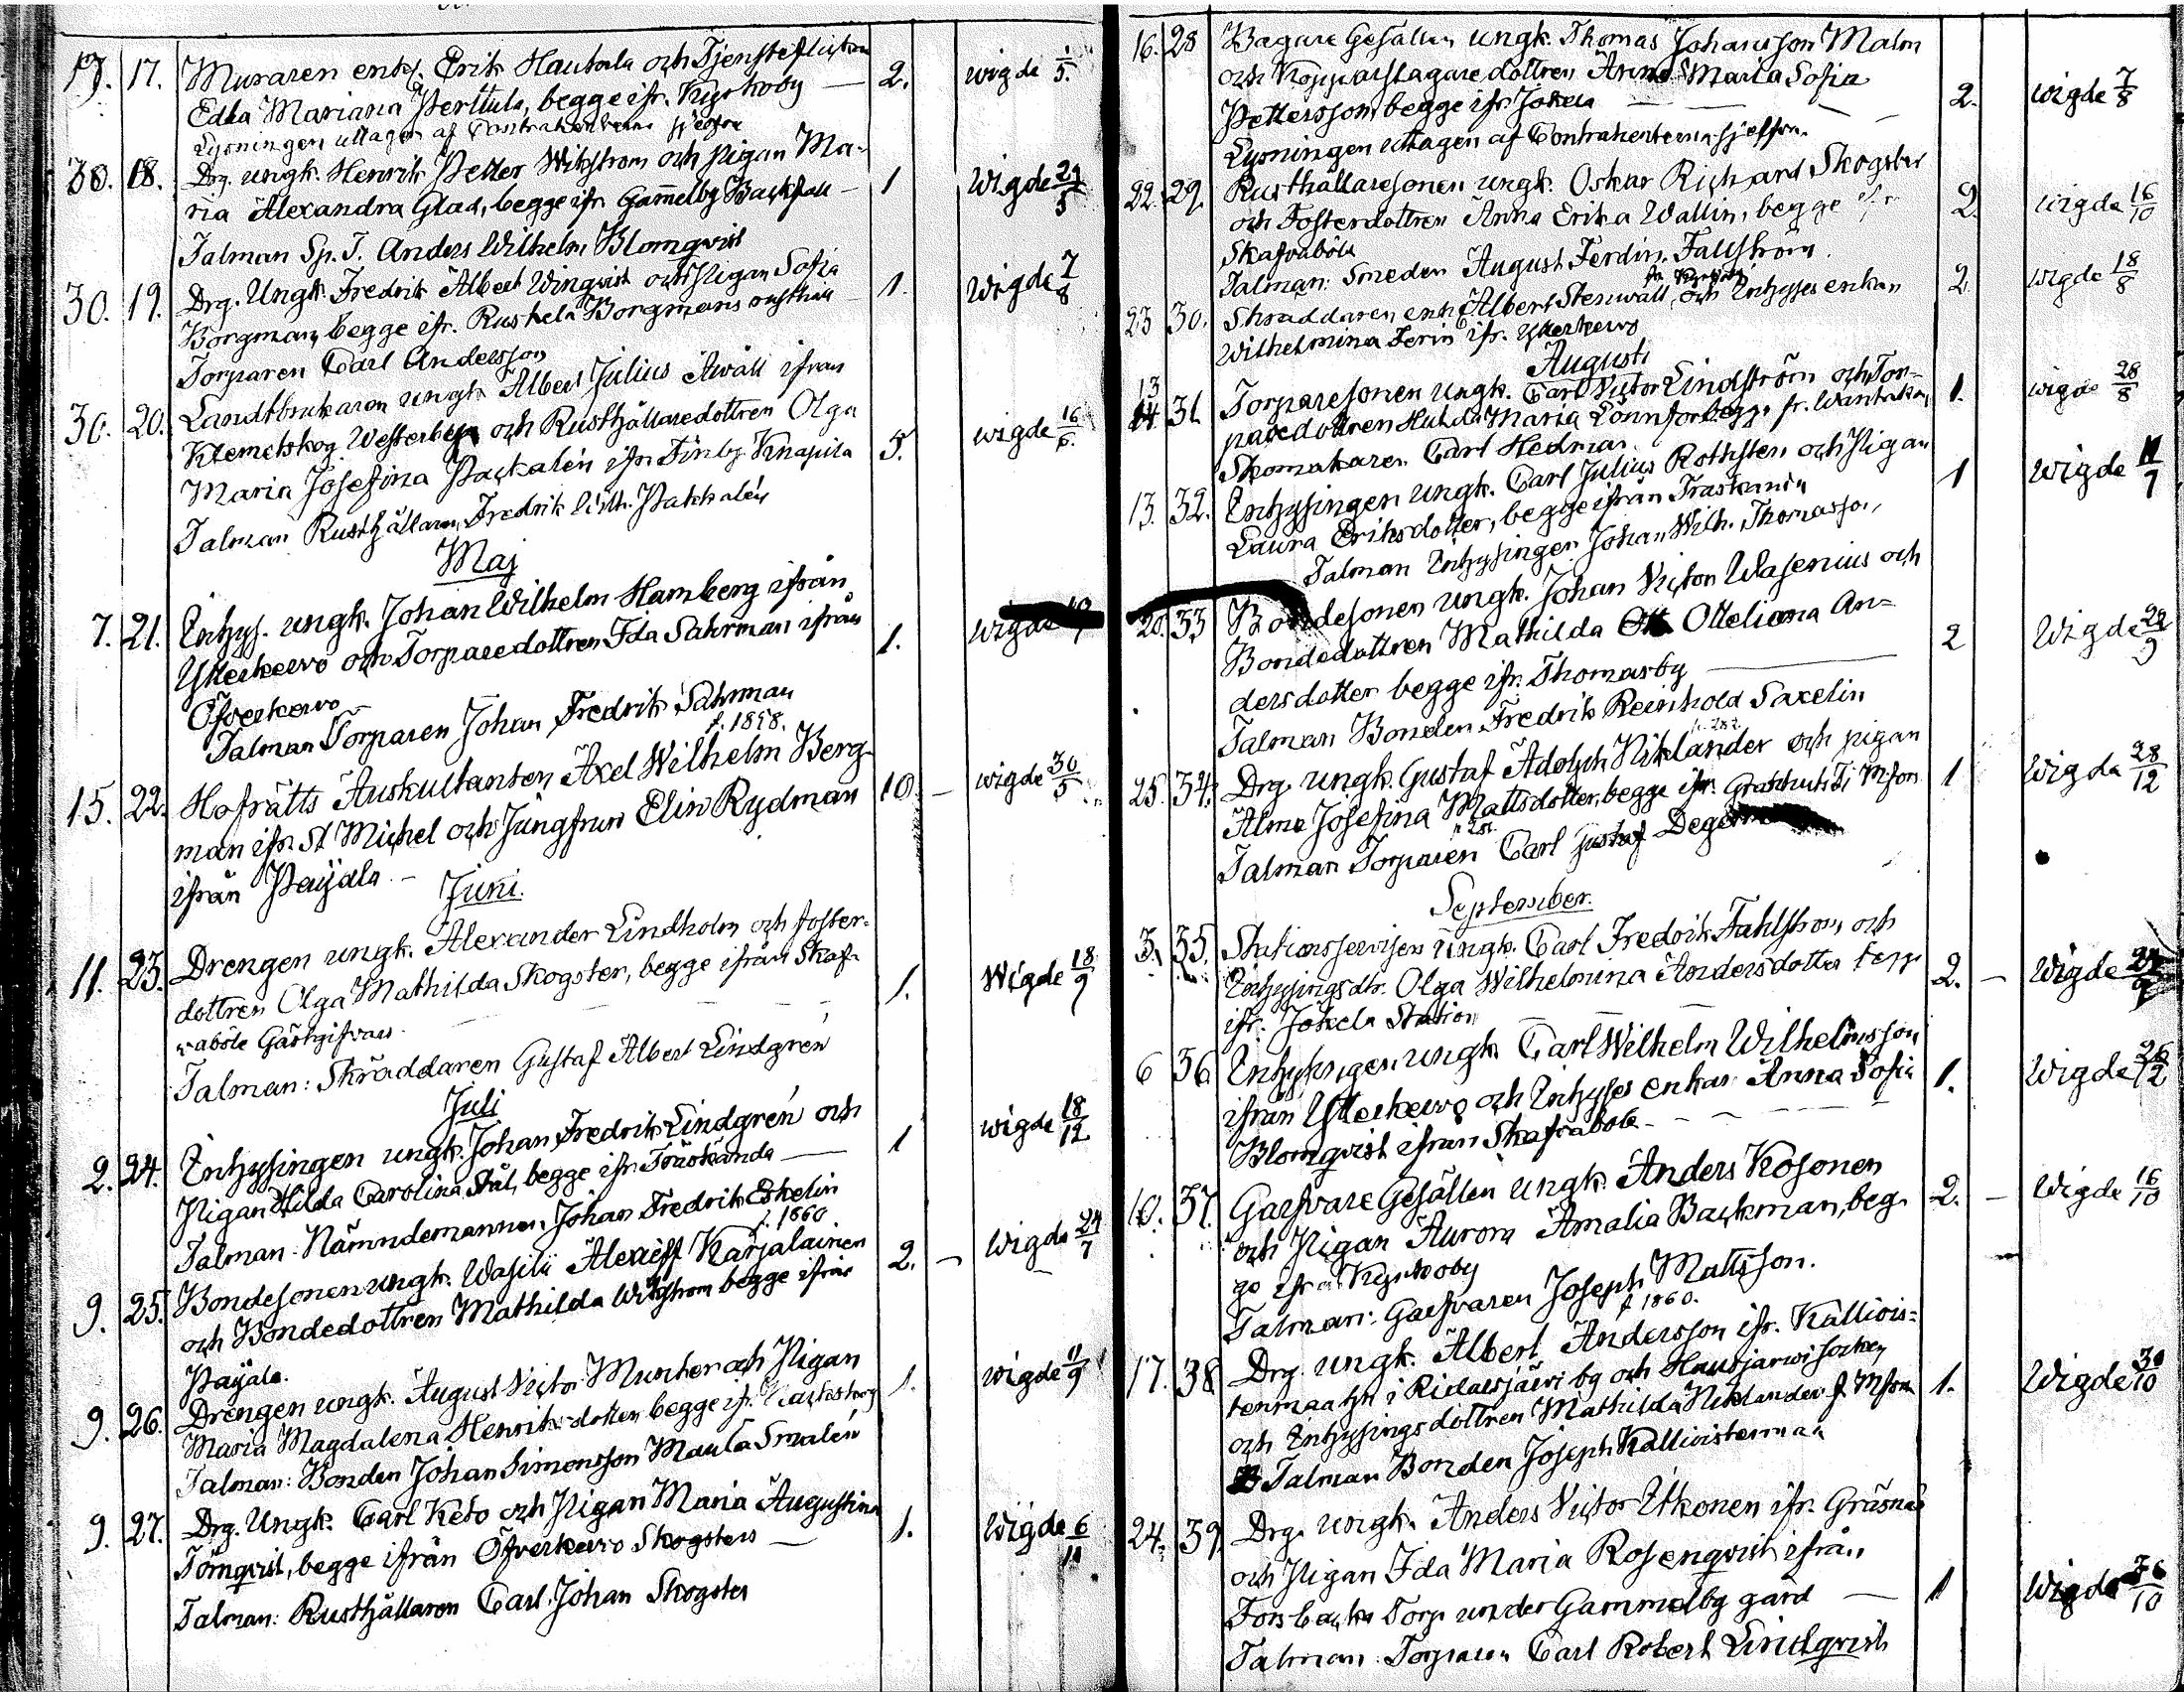 19. 17. Muraren enkl. Erik Hautala och Tjensteflickan
Edla Mariana Perttula, begge ifr. Kyrkoby — 2. wigde 1/5.
Lysningen uttagen af Contrahenterna sjelfva
30. 18. Drg. ungk. Henrik Petter Wikström och Pigan Ma-
ria Alexandra Glad, begge ifr. Gammelby Backsta — 1 wigde 29/5
Talman Sp. T. Anders Wilhelm Blomqvist
30. 19. Drg. Ungk. Fredrik Albert Winqvist och Pigan Sofia
Borgman, begge ifr. Ruskela Borgmans rusthåll — 1. wigde 7/8
Torparen Carl Andersson
30. 20. Landtbrukaren ungk. Albert Julius Awall ifrån
Klemetskog Westerby och Rusthållaredottren Olga
Maria Josefina Packalén ifr. Finby Knapila 5. wigde 16/6.
Talman Rusthållaren Fredrik Wilh. Pakkalén
Maj
7. 21. Inhys. ungk. Johan Wilhelm Hamberg ifrån
Ytterkervo och Torparedottren Ida Sahrman ifrån 1. wigde
Öfverkervo
Talman Torparen Johan Fredrik Sahrman
f. 1858.
15. 22. Hofrätts Auskultanten Axel Wilhelm Berg-
man ifr. St Michel och Jungfrun Elin Rydman 10. — wigde 30/5
ifrån Payala —
Juni.
11. 23. Drengen ungk. Alexander Lindholm och foster-
dottren Olga Mathilda Skogster, begge ifrån Skaf- 1. Wigde 18/9
waböle Gästgifvars
Talman: Skräddaren Gustaf Albert Lindgrén
Juli
2. 24. Inhysingen ungk. Johan Fredrik Lindgrén och
Pigan Hilda Carolina Stål, begge ifr. Träskända — 1 wigde 18/12
Talman: Nämndemannen Johan Fredrik Eskelin
f. 1860
9. 25. Bondesonen ungk. Wasilii Alexieff Karjalainen 2. — wigde 24/7
och Bondedottren Mathilda Wikström begge ifrån
Payala.
9. 26. Drengen ungk. August Victor Munther och Pigan
Maria Magdalena Henriksdotter begge ifr. 1. wigde 11/9
Talman: Bonden Johan Simonsson Maula Smalén
9. 27. Drg. Ungk. Carl Keto och Pigan Maria Augustina
Törnqvist, begge ifrån Öfverkervo Skogsters — 1. Wigde 6/11
Talman: Rusthållaren Carl Johan Skogster
16. 28 Bagare Gesällen ungk. Thomas Johansson Malm
och Kopparslagare dottren Anna Maria Sofia
Pettersson, begge ifr. Jokela — 2. wigde 7/8
Lysningen uttagen af Contrahenterna sjelfva.
22. 29. Rusthållaresonen ungk. Oskar Richard Skogster
och Fosterdottren Anna Erika Wallin, begge ifr 2. wigde 16/10
Skafvaböle
Talman: Smeden August Ferdin. Fallström.
23 30. Skräddaren enkl. Albert Stenwall, och Inhyses enkan 2 wigde 18/8
Wilhelmina Ferin ifr. Ytterkervo
Augusti
13
14 31. Torparesonen ungk. Carl Victor Lindström och Tor-
paredottren Hulda Maria Lönnfors begge fr. 1. wigde 28/8
Skomakaren Carl Hedman.
13. 32. Inhysingen ungk. Carl Julius Rothsten och Pigan
Laura Eriksdotter, begge ifrån Träskända 1 wigde
Talman Inhysingen Johan Wilh. Thomasson,
20. 33 Bondesonen ungk. Johan Victor Wasenius och
Bondedottren Mathilda Otteliana An-
dersdotter begge ifr. Thomasby — 2 Wigde
Talman Bonden Fredrik Reinhold Saxelin
25. 34. Drg. ungk. Gustaf Adolph Niklander och pigan
Alma Josefina Mattsdotter, begge ifr. 1 Wigde 28/12
Talman Torparen Carl Gustaf
September.
3. 35. Stationsservisen Ungk. Carl Fredrik Fahlström och
Inhysingsdtr. Olga Wilhelmina Andersdotter begge 2. — Wigde
ifr. Jokela Station
6 36 Inhysingen ungk. Carl Wilhelm Wilhelmsson
ifrån Ytterkervo och Inhyses enkan Anna Sofia 1. Wigde 26/12
Blomqvist ifrån Skafvaböle —
10. 37. Garfvare Gesällen ungk. Anders Kosonen
och Pigan Aurora Amalia Backman, beg- 2. — Wigde 16/10
ge ifrån Kyrkoby
Talman: Garfvaren Joseph Mattsson.
f. 1860.
17. 38 Drg. ungk. Albert Andersson ifr. Kalliois-
tenmaa hn i Ridasjärvi by och Hausjärwi Socken
och Inhysingsdottren Mathilda Niklander f. Mson 1. Wigde 30/10
Talman Bonden Joseph Kallioistenmaa
24. 39. Drg. ungk. Anders Victor Itkonen ifr. Gräsnäs
och Pigan Ida Maria Rosenqvist ifrån
Forsbacka Torp under Gammelby gård — 1 Wigde
Talman: Torparen Carl Robert Lindqvist